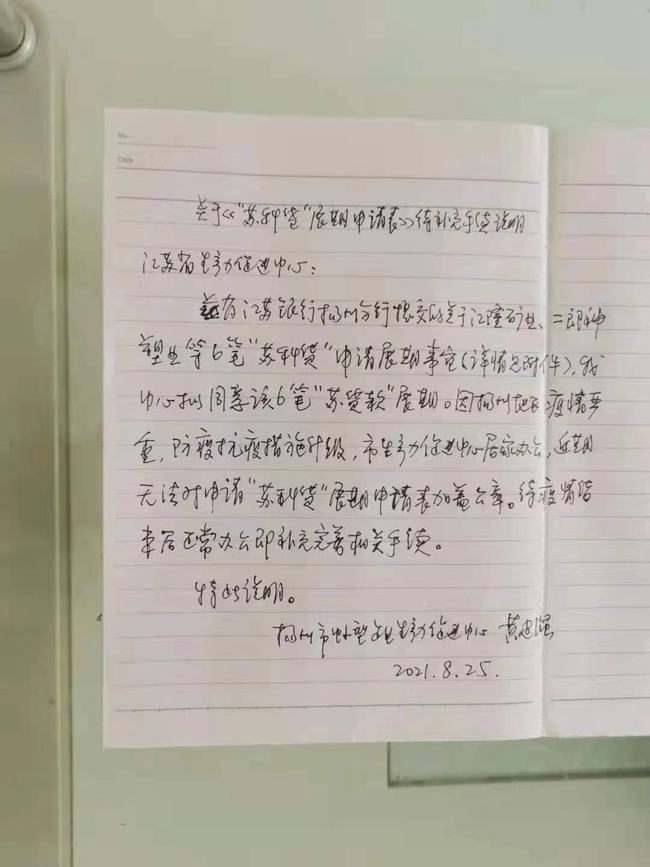 No.
Date
关于《"苏科贷"展期申请表》待补充手续说明
江苏省生产力促进中心：
兹有江苏银行扬州分行提交的关于江隆矿业、二郎神
塑业等6笔"苏科贷"申请展期事宜（详情见附件），我
中心拟同意该6笔"苏贷款"展期。因扬州地区疫情严
重，防疫抗疫措施升级，市生产力促进中心居家办公，近期
无法对申请"苏科贷"展期申请表加盖公章。待疫情结
束后正常办公即补充完善相关手续。
特此说明。
扬州市 生产力促进中心 黄建强
2021.8.25.